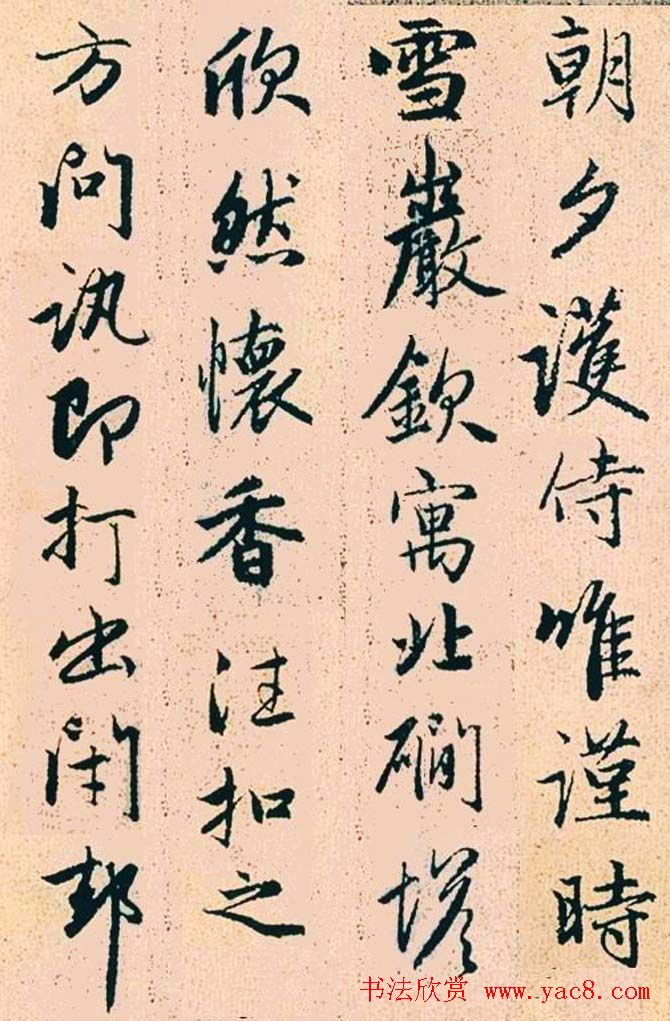 朝夕護侍唯謹時
雪巖欽寓北磵塔
欣然懷香往扣之
方問訊即打出閉却
书法欣赏 www.yac8.com